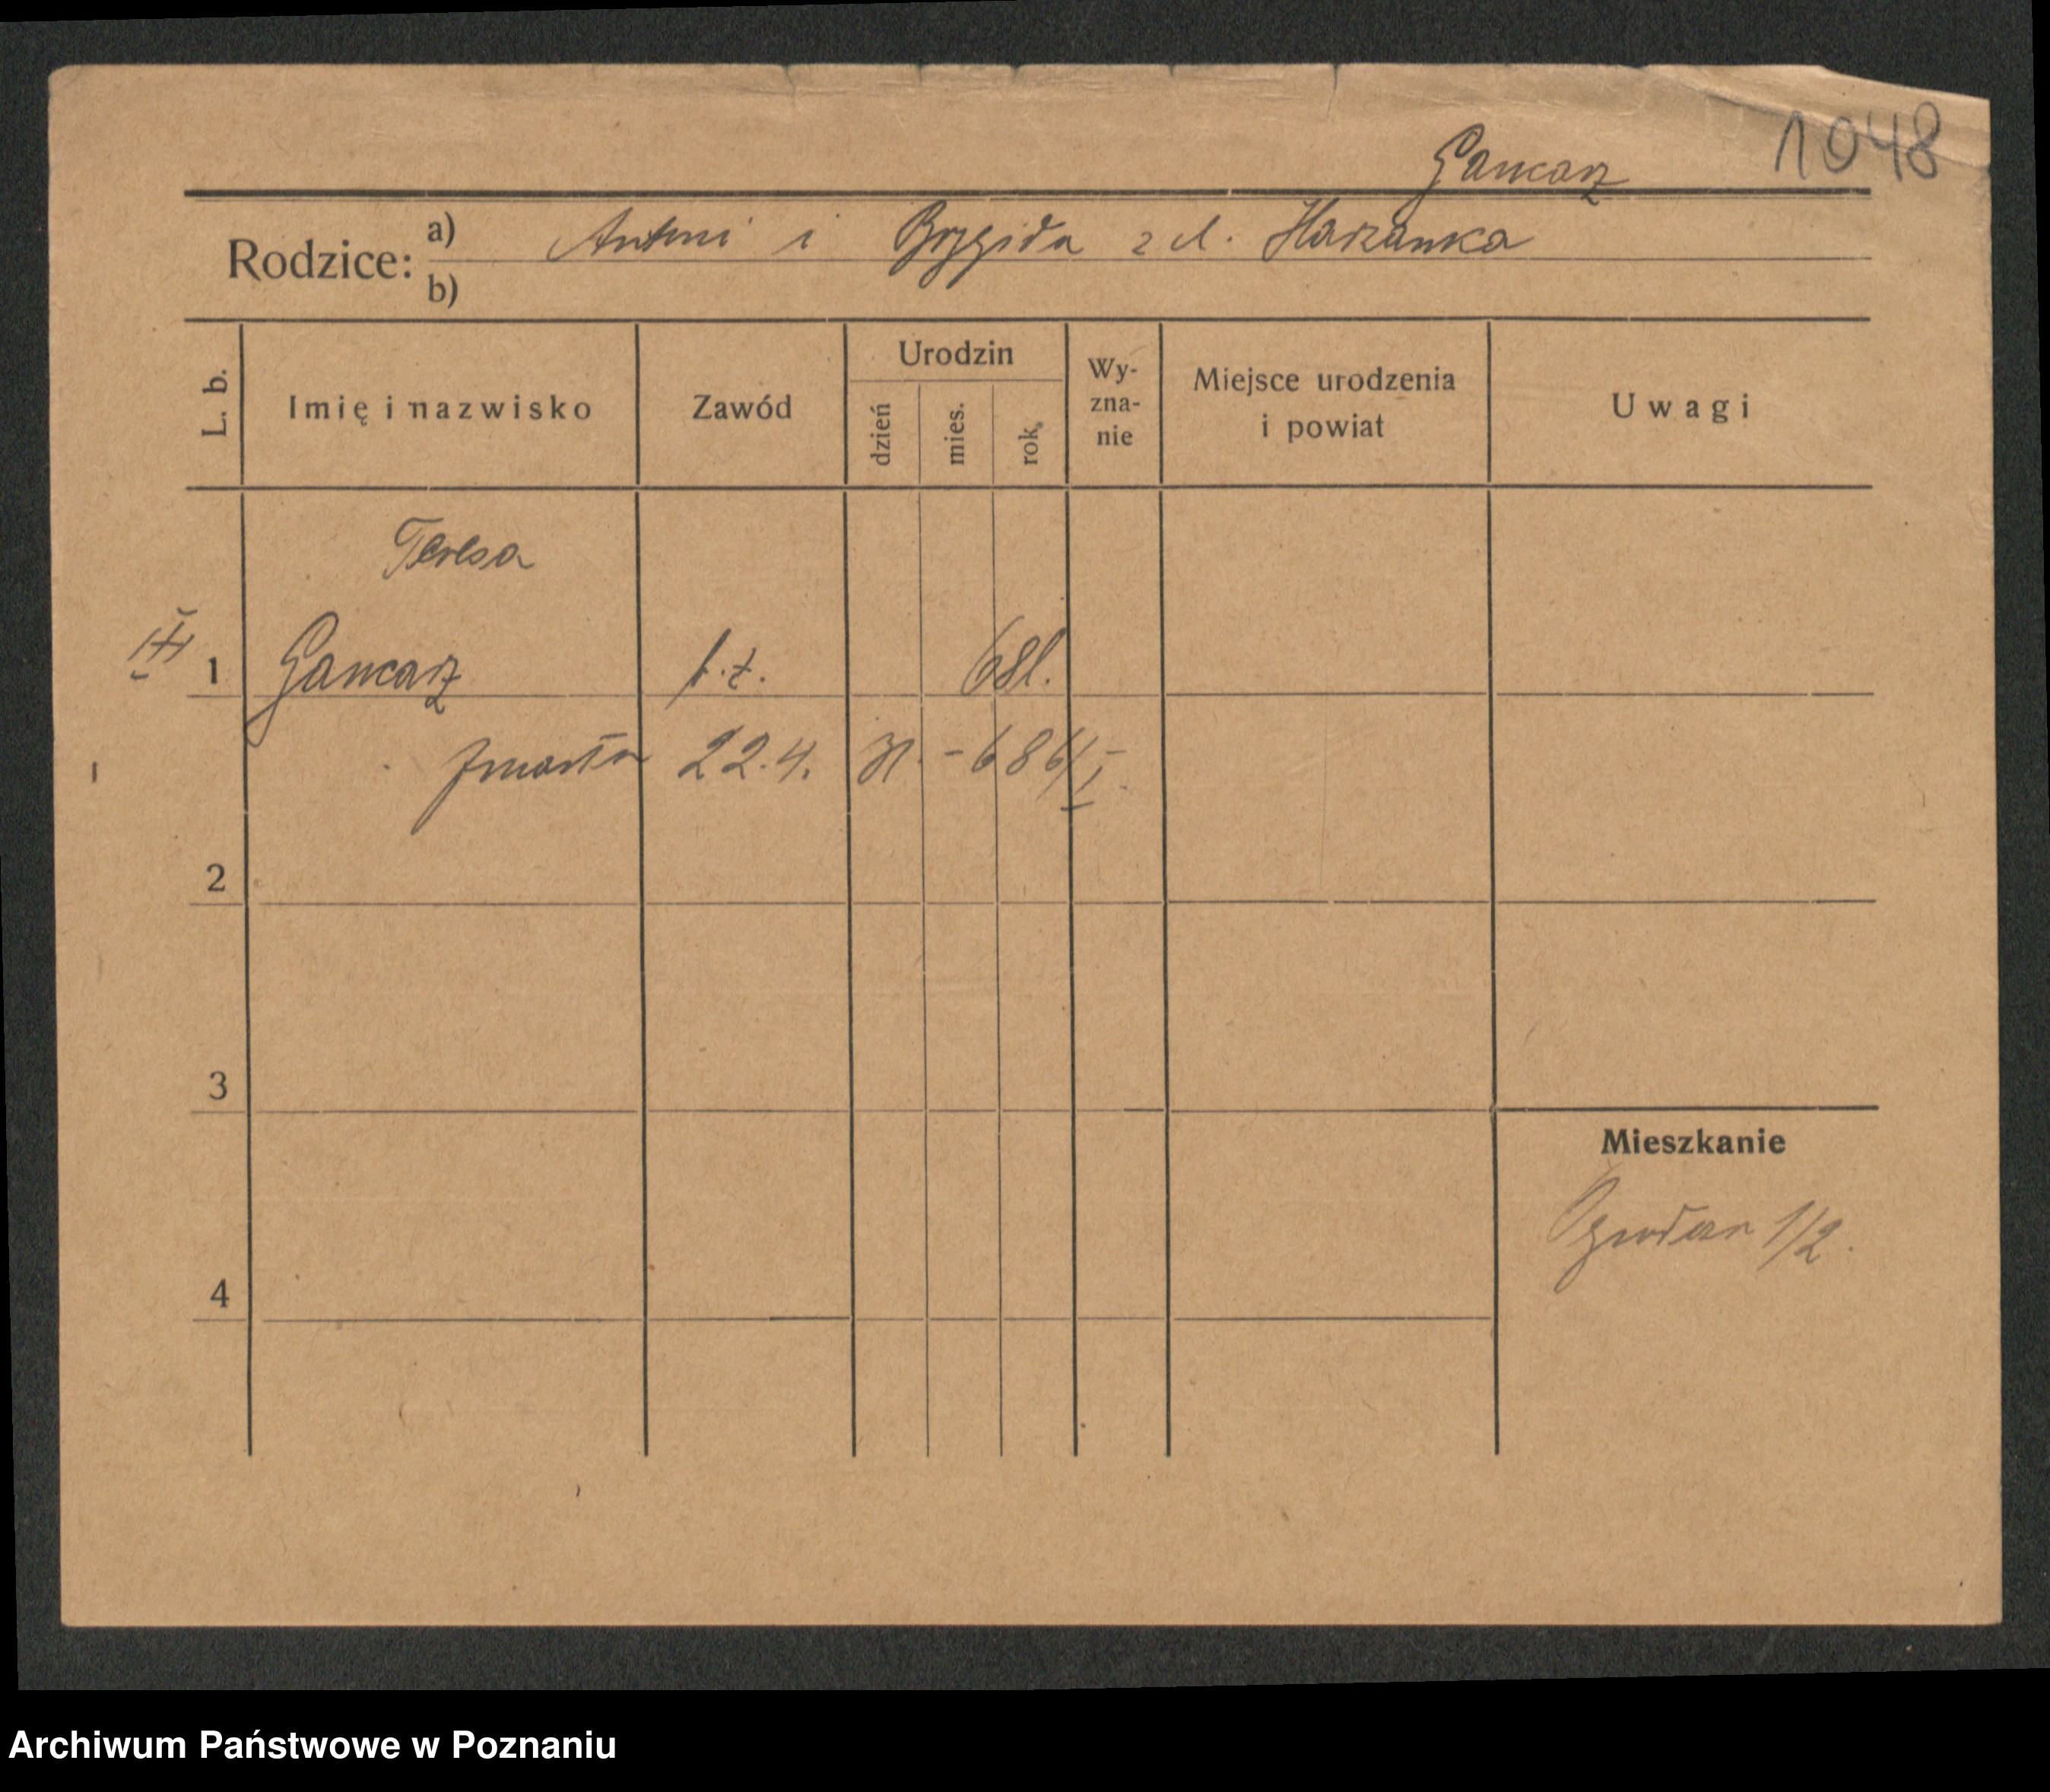 1048
Gancarz
Rodzice: a) Antoni i Brygida z d. Harzanka
b)
L. b.
Imię i nazwisko
Zawód
Urodzin
dzień
mies.
rok
Wy-
zna-
nie
Miejsce urodzenia
i powiat
Uwagi
Teresa
1 Gancarz b.z. 68 l.
zmarła 22.4. 31 - 686/I
2
3
Mieszkanie
1/2.
4
Archiwum Państwowe w Poznaniu